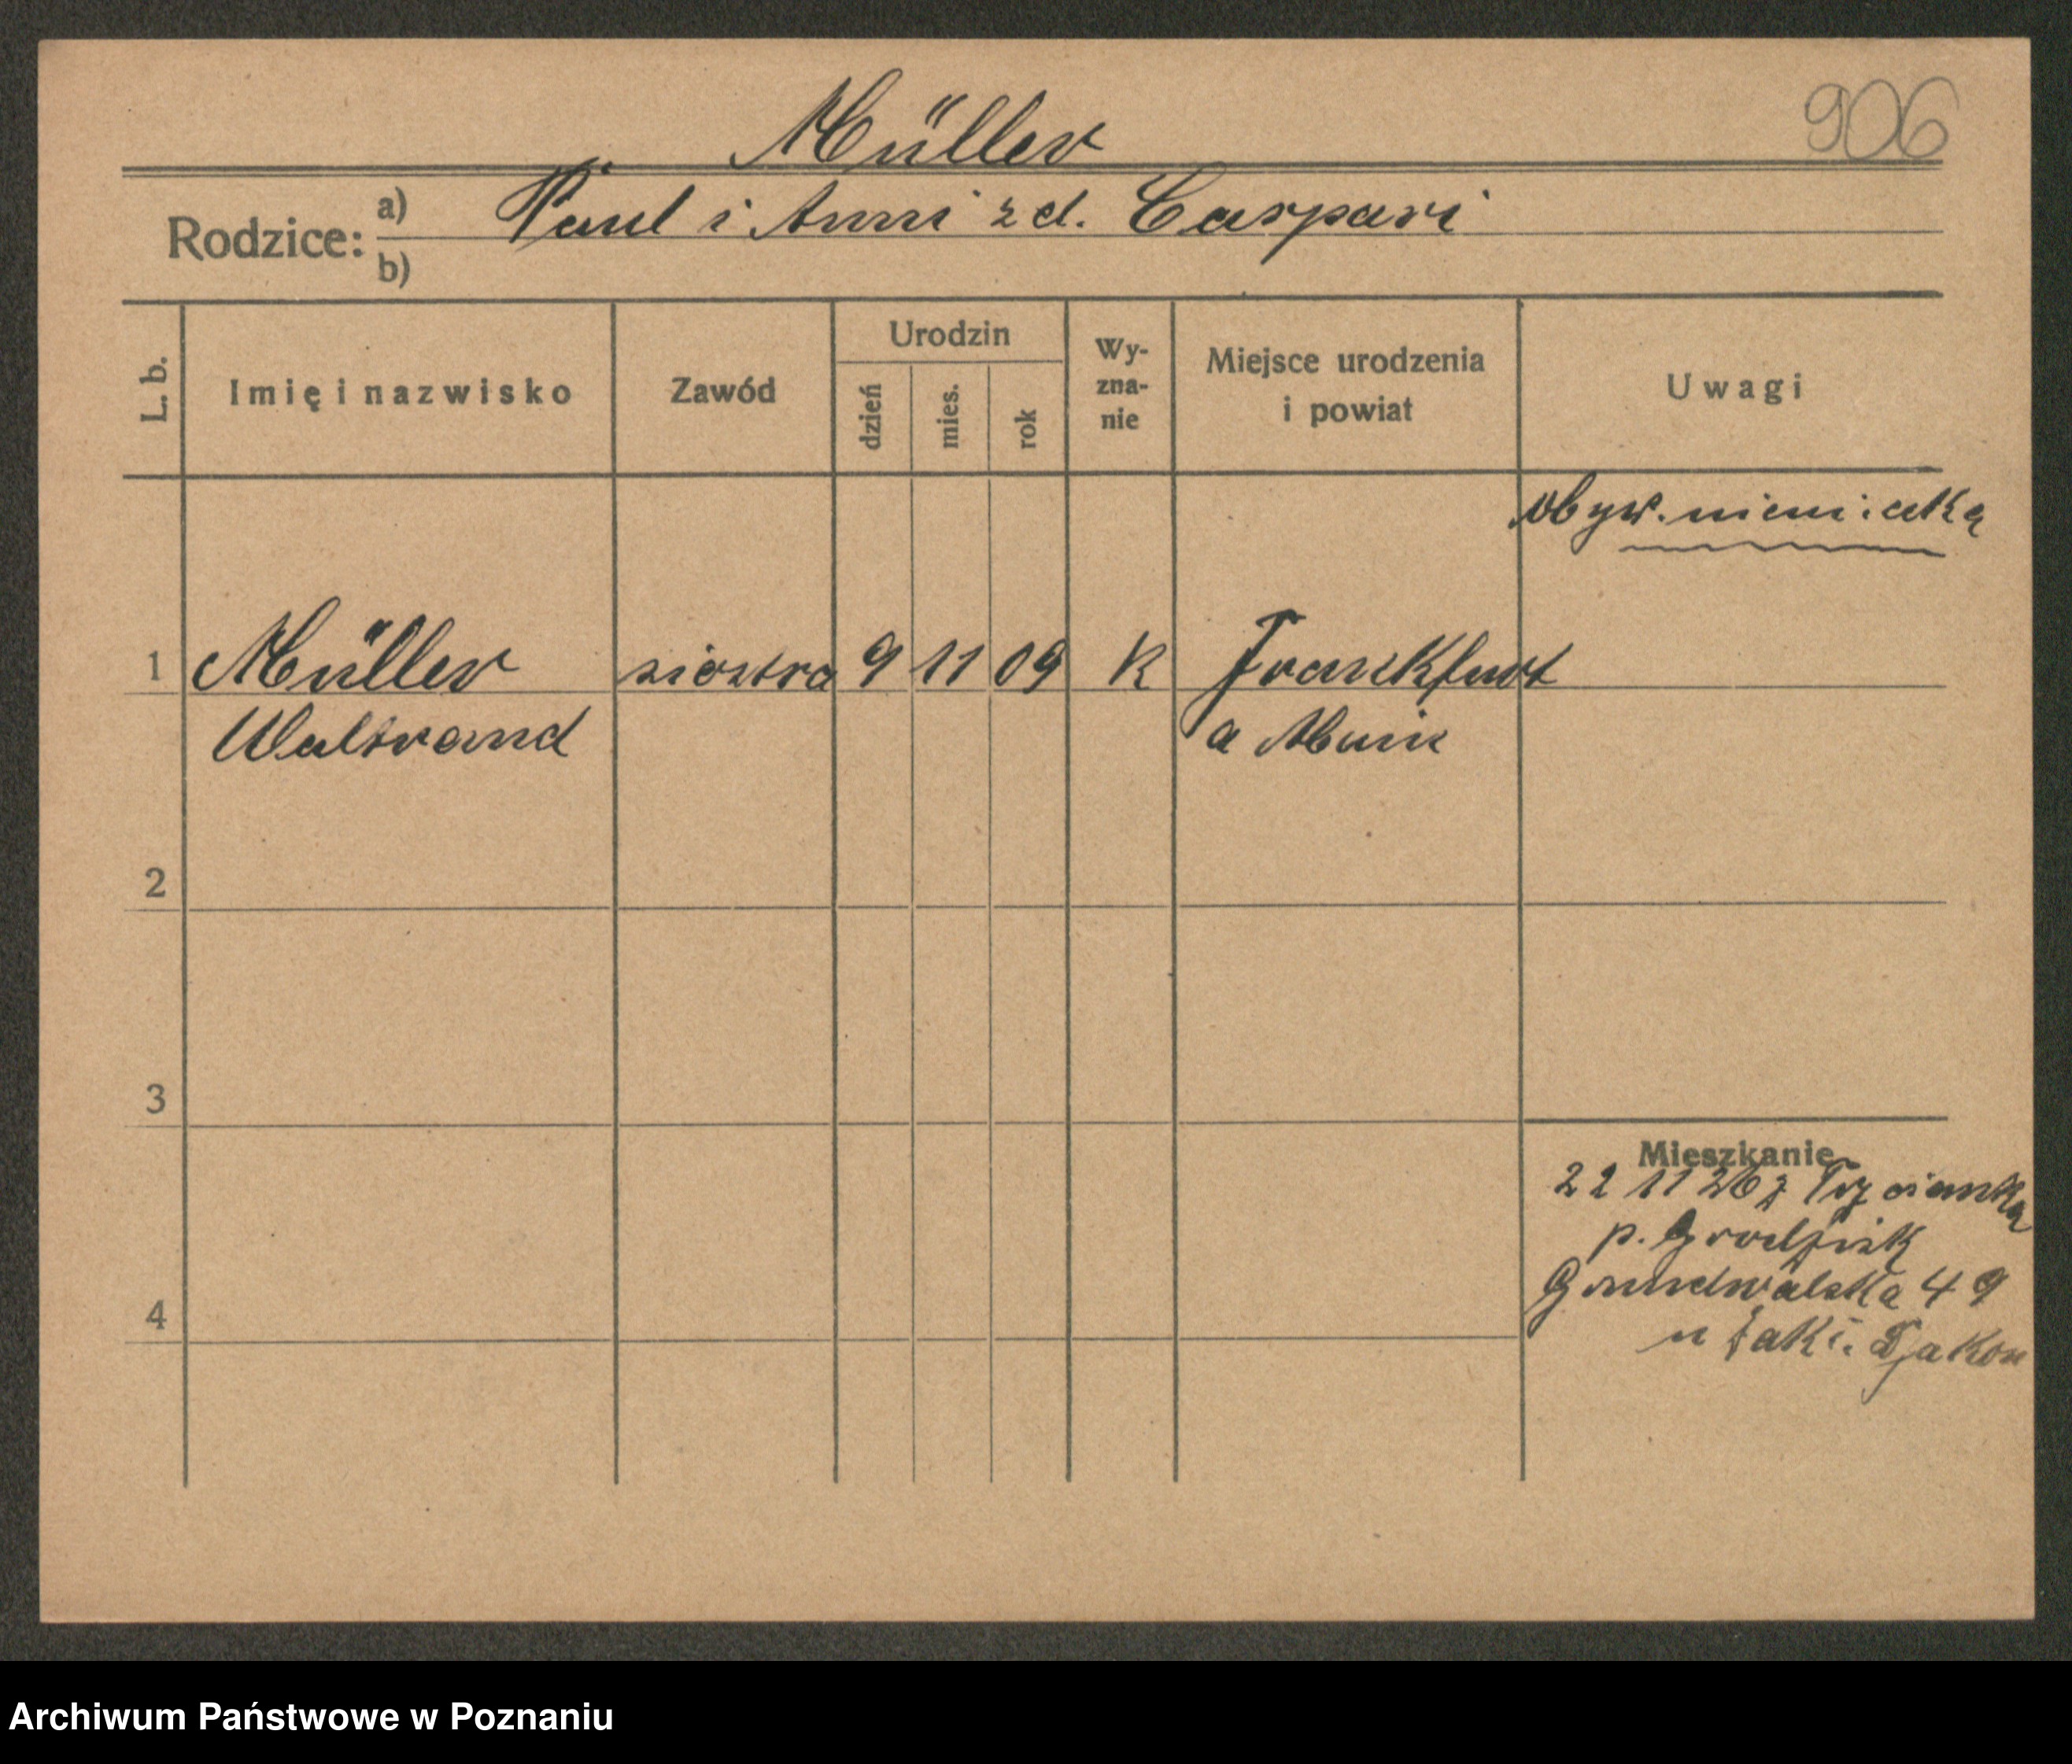 Müller
906
Rodzice: a) Paul i Anni z d. Caspari
b)
L. b.
Imię i nazwisko
Zawód
Urodzin
dzień
mies.
rok
Wy-
zna-
nie
Miejsce urodzenia
i powiat
Uwagi
obyw. niemiecką
1 Müller siostra 9 11 09 K Frankfurt
Waltraud a Main
2
3
Mieszkanie
22 11 26 z Trzcianka
p. Grodzisk
Grunwaldzka 49
u
4
Archiwum Państwowe w Poznaniu